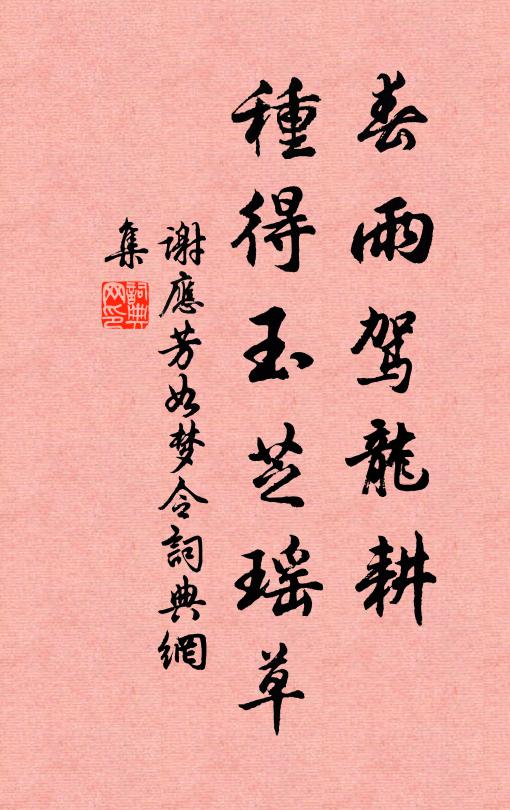 春雨駕龍耕
種得玉芝瑶草
謝應芳如梦令詞典網
集
詞典
网印